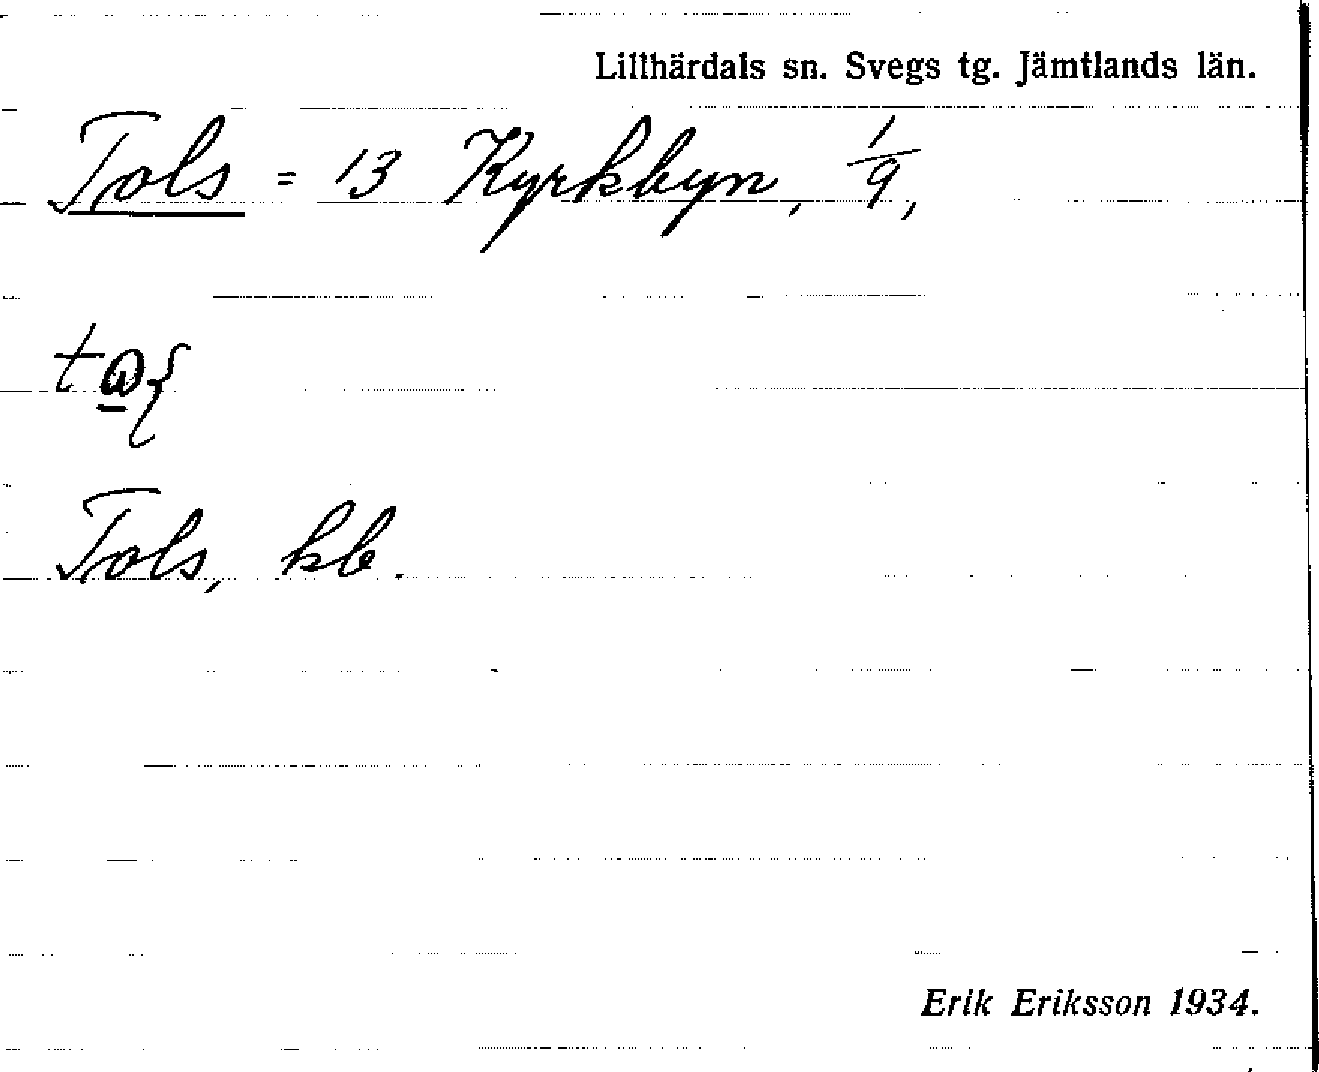 Lillhärdals sn. Svegs tg. Jämtlands län.
Tols = 13 Kyrkbyn, 1/9,
Tols, kb.
Erik Eriksson 1934.